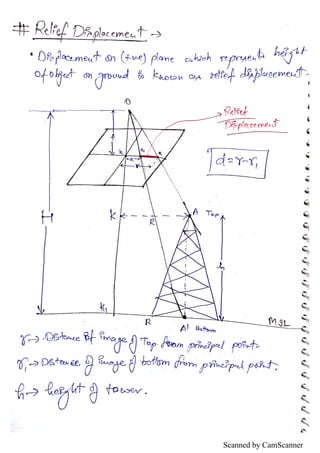 # Relief Displacement →
• Displacement on (+ve) plane which represents height
of object on ground is known as relief displacement.
O
Relief
Displacement
d=r-r₁
H
K
A Top
R
h
K₁
R
A' bottom
MSL
r → Distance of image of Top from principal point.
r₁ → Distance of image of bottom from principal point.
h → height of tower.
Scanned by CamScanner